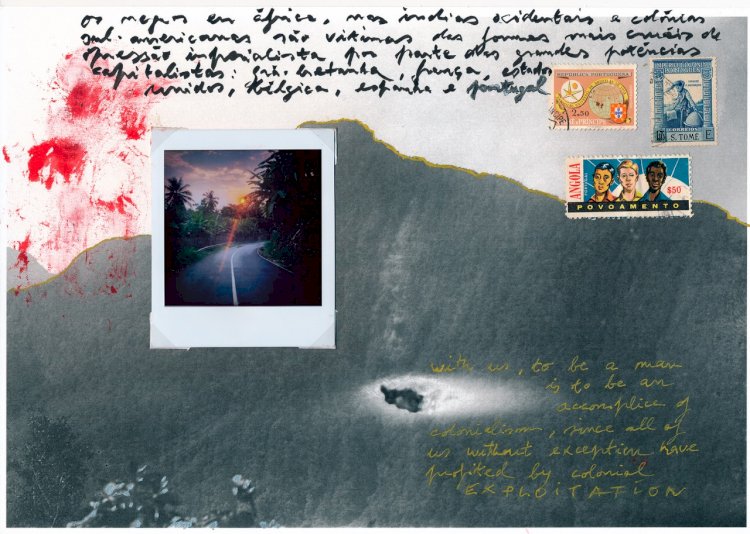 os negros em áfrica, nas índias ocidentais e colónias
sul-americanas são vítimas das formas mais cruéis de
opressão imperialista por parte das grandes potências
capitalistas: grã-bretanha, frança, estados
unidos, bélgica, espanha e portugal
REPÚBLICA PORTUGUESA
2$50
S. TOMÉ
E
ANGOLA
$50
POVOAMENTO
with us, to be a man
is to be an
accomplice of
colonialism, since all of
us without exception have
profited by colonial
EXPLOITATION